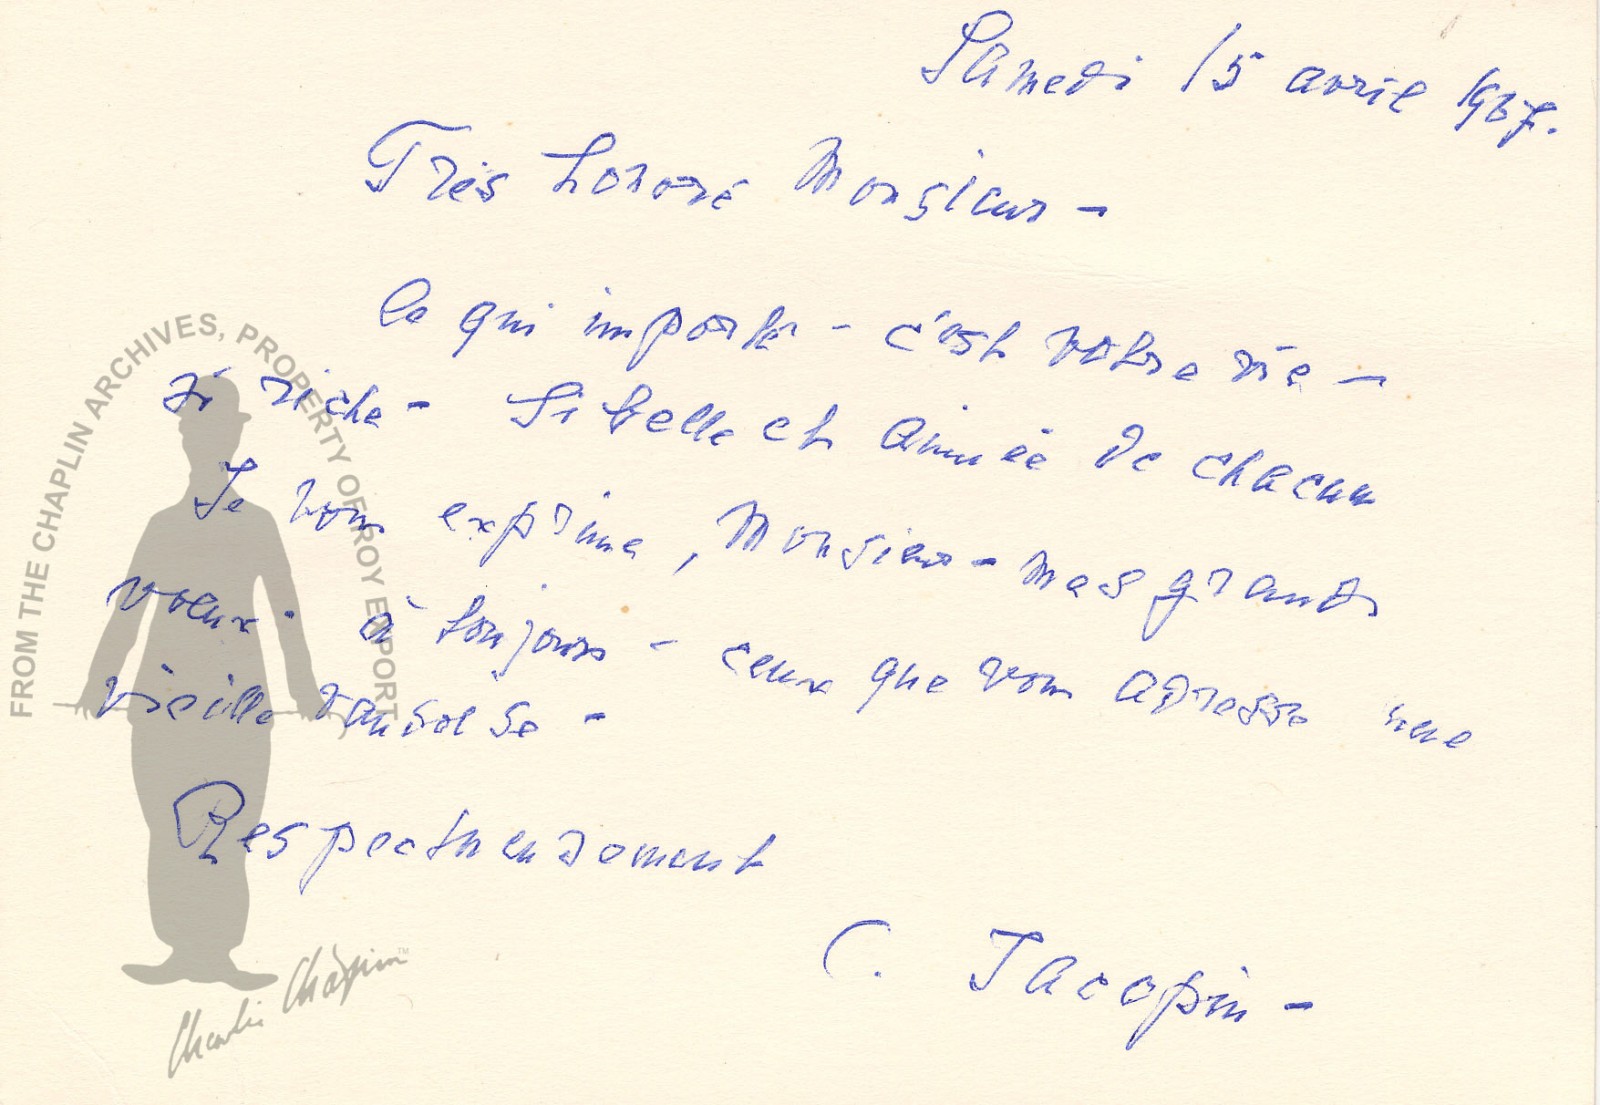 Samedi 15 avril 1967.
Très honoré Monsieur -
Ce qui importe - c'est votre vie -
si riche - Si belle et aimée de chacun
Je vous exprime, Monsieur - mes grands
voeux. à toujours - ceux que vous adresse une
vieille vaudoise -
Respectueusement
C. Jacopin -
FROM THE CHAPLIN ARCHIVES, PROPERTY OF ROY EXPORT
Charlie Chaplin™